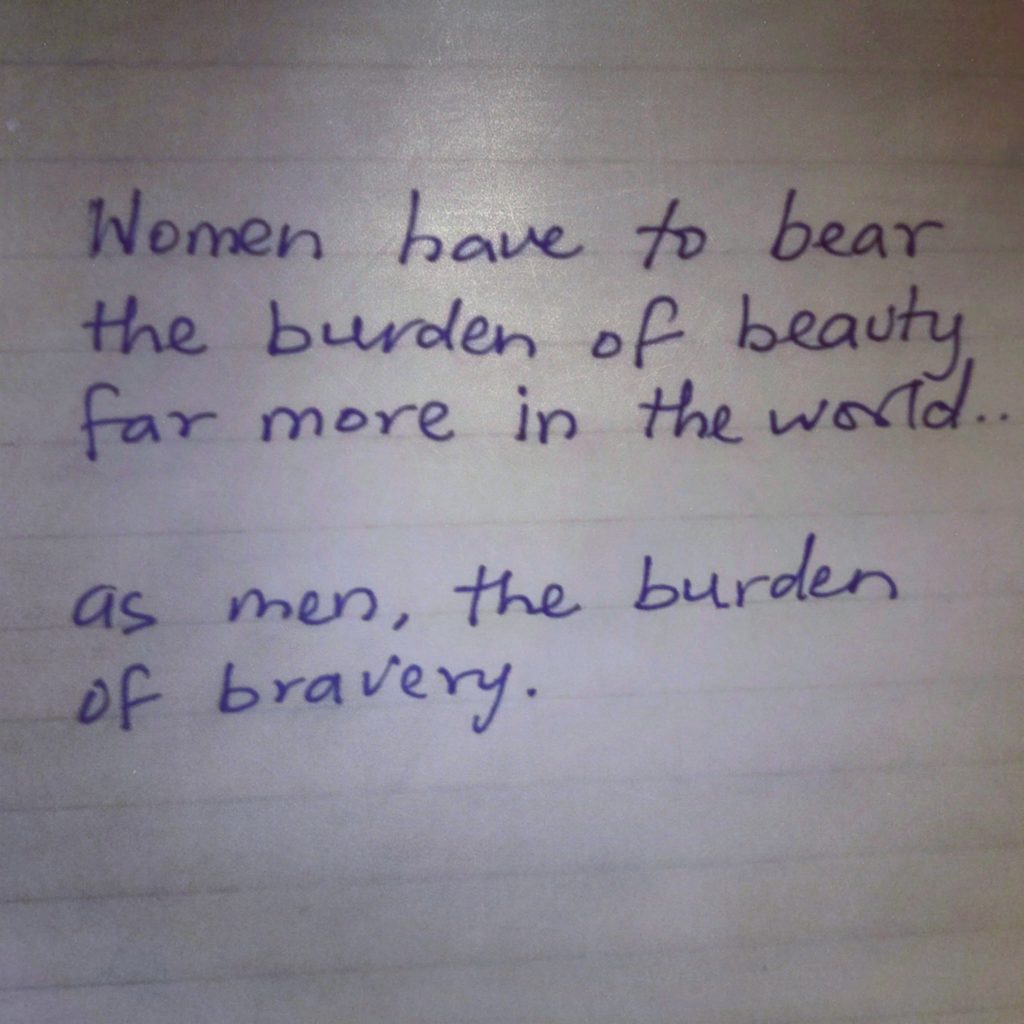 Women have to bear
the burden of beauty
far more in the world..
as men, the burden
of bravery.